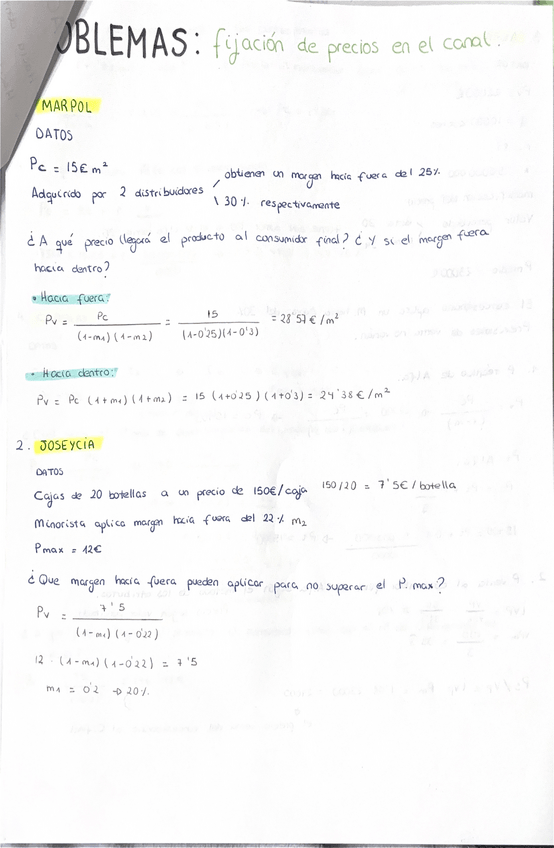 OBLEMAS: fijación de precios en el canal.
MARPOL
DATOS
Pc = 15€ m²
Adquirido por 2 distribuidores / obtienen un margen hacia fuera del 25%
\ 30% respectivamente
¿A qué precio llegará el producto al consumidor final? ¿Y si el margen fuera
hacia dentro?
• Hacia fuera:
Pv = Pc / (1-m1)(1-m2) = 15 / (1-0'25)(1-0'3) = 28'57 € /m²
• Hacia dentro:
Pv = Pc (1+m1)(1+m2) = 15 (1+0'25)(1+0'3) = 24'38 € /m²
2. JOSEYCIA
DATOS
Cajas de 20 botellas a un precio de 150€/caja 150/20 = 7'5€ /botella
Minorista aplica margen hacia fuera del 22% m2
Pmax = 12€
¿Que margen hacia fuera pueden aplicar para no superar el P. max?
Pv = 7'5 / (1-m1)(1-0'22)
12 · (1-m1)(1-0'22) = 7'5
m1 = 0'2 → 20%